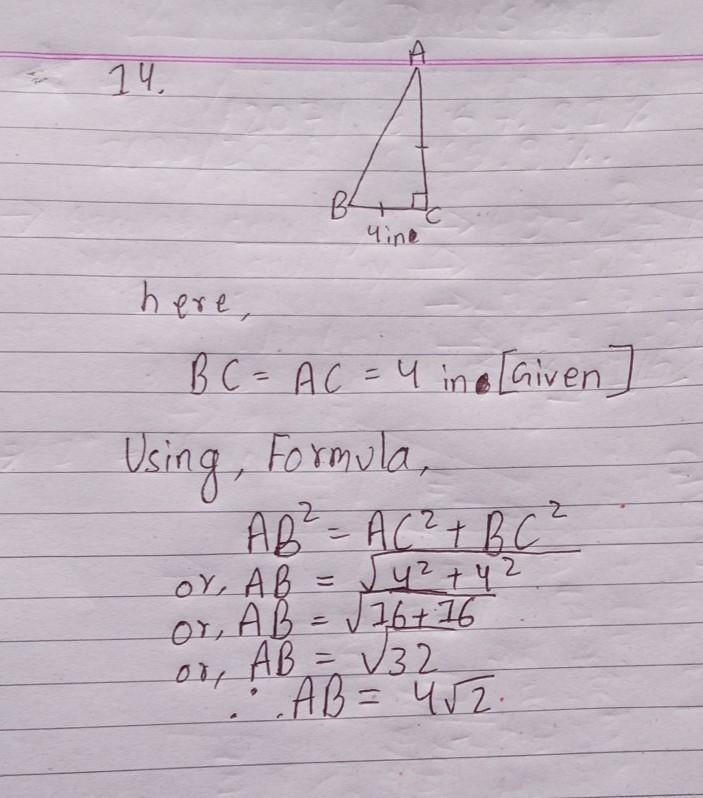 14.
A
B
C
4 in
here,
BC = AC = 4 in [Given]
Using, Formula,
AB² = AC² + BC²
or, AB = √4² + 4²
or, AB = √16+16
or, AB = √32
∴ AB = 4√2.